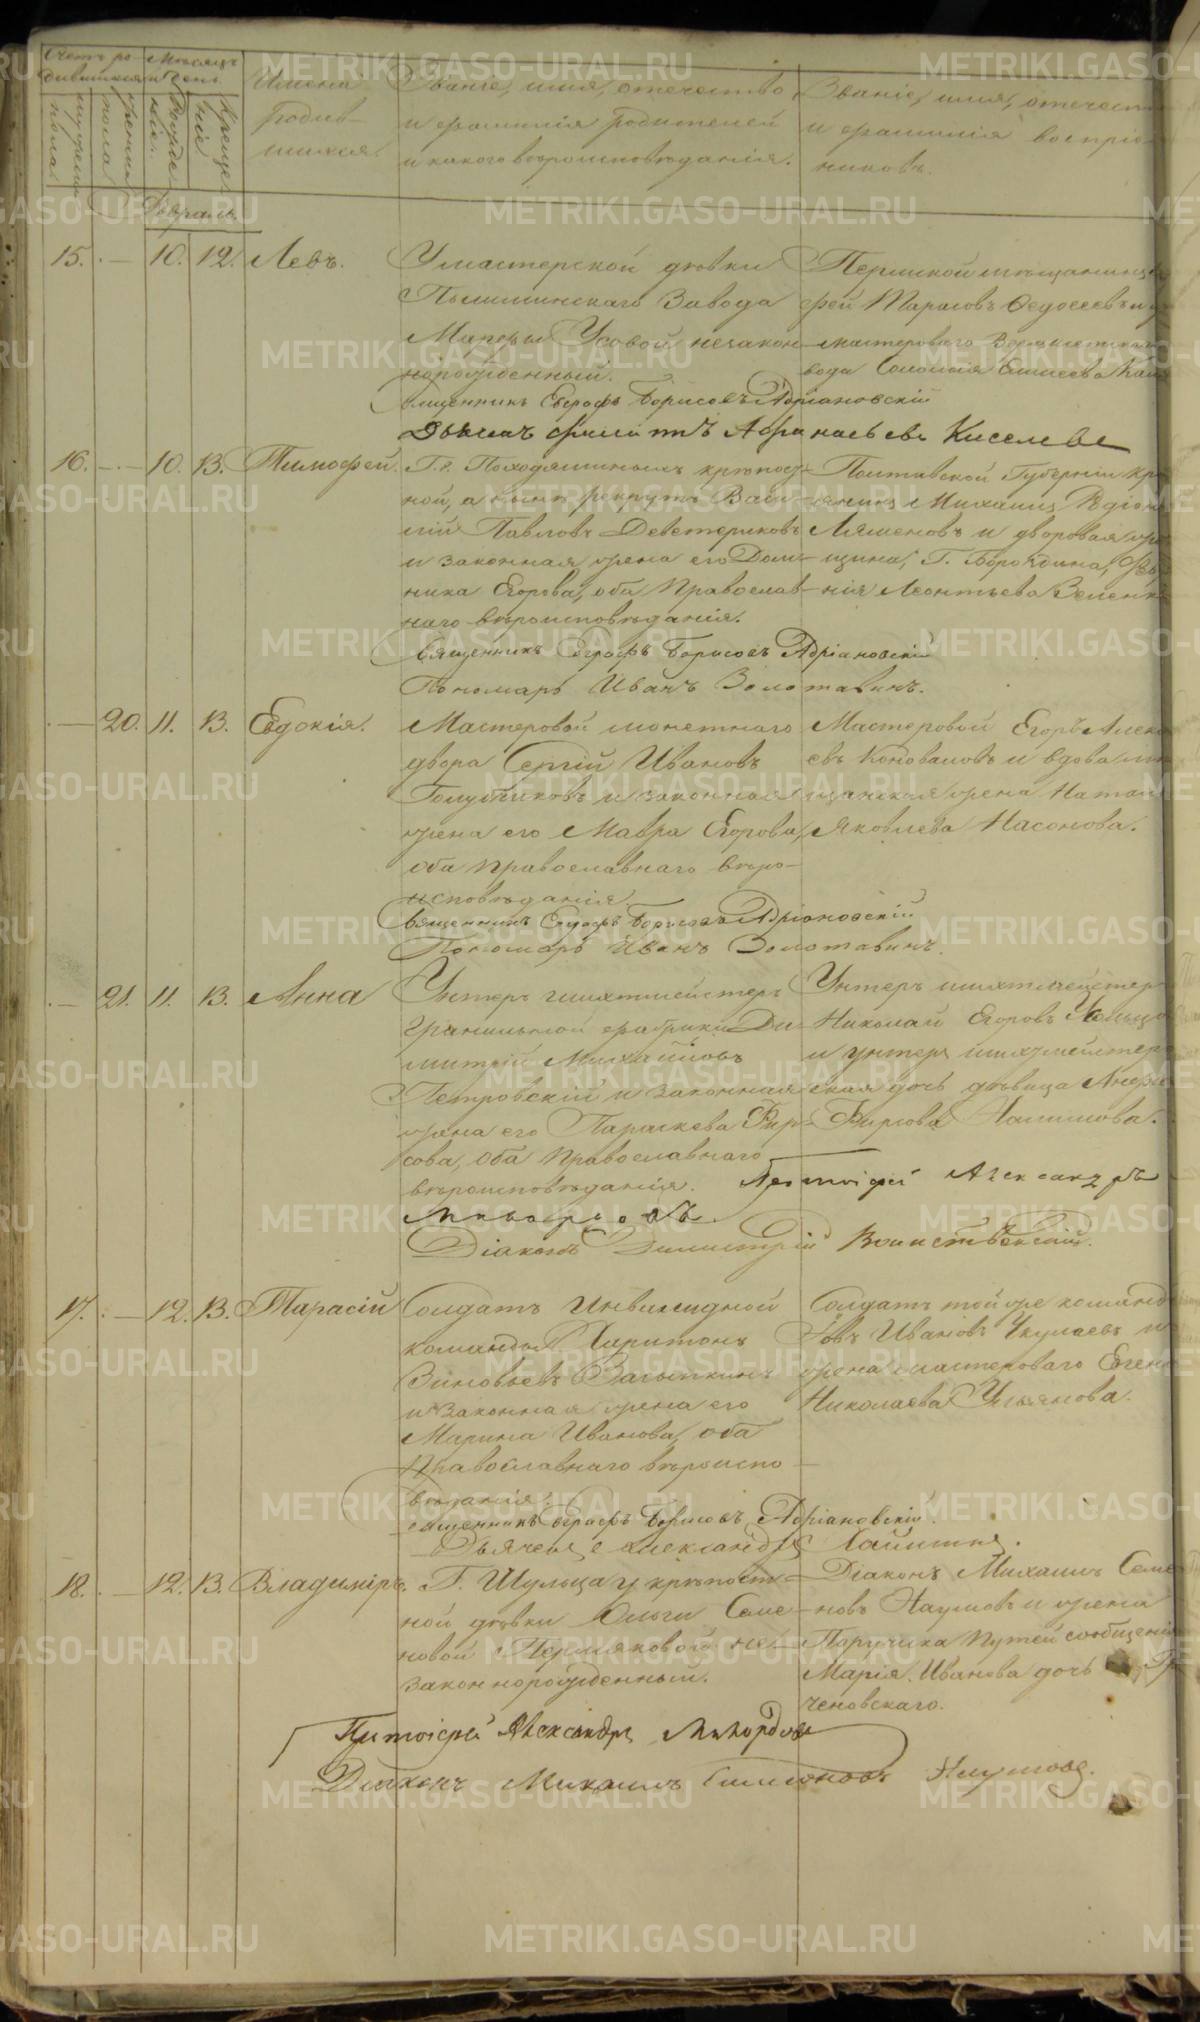 Счетъ ро- Мѣсяцъ
дившихся и день.
мужеска пола
женска пола
рожде нія.
креще нія
Имена родив- шихся.
Званіе, имя, отечество
и фамилія родителей
и какого вѣроисповѣданія.
Званіе, имя, отечест
и фамилія воспріе
никовъ.
Февраль.
15. — 10. 12. Левъ.
У мастерской дѣвки
Пышминскаго Завода
Марфы Усовой незакон
норожденный.
Пермской мѣщанинъ
фей Тарасовъ Федосеевъ и
мастероваго
вода Соломія Елисеева
Священникъ Евграфъ Борисовъ Адріановскій
Афанасьевъ Киселевъ
16. — 10. 13. Тимофей.
Г. Походяшиныхъ крѣпост-
ной, а нынѣ рекрутъ Васи-
лій Павловъ Деветериковъ
и законная жена его Дом-
ника Егорова, оба Православ-
наго вѣроисповѣданія.
Полтавской Губерніи кре
янинъ Михаилъ Родіон
Ляменовъ и дворовая
щина, Г. Бороздина,
нія Леонтьева Зелен
Священникъ Евграфъ Борисовъ Адріановскій
Пономарь Иванъ Золотавинъ.
— 20. 11. 13. Евдокія.
Мастеровой монетнаго
двора Сергій Ивановъ
Голубчиковъ и законная
жена его Мавра Егорова,
оба православнаго вѣро-
исповѣданія
Мастеровой Егоръ Алекс
евъ Коноваловъ и вдова
щанская жена Натал
Яковлева Насонова.
Священникъ Евграфъ Борисовъ Адріановскій
Пономарь Иванъ Золотавинъ.
— 21. 11. 13. Анна
Унтеръ шихтмейстеръ
Гранильной фабрики Ди-
митрій Михайловъ
Петровскій и законная
жена его Параскева Фир-
сова, оба православнаго
вѣроисповѣданія.
Унтеръ шихтмейстеръ
Николай Егоровъ
и унтеръ шихтмейстер
ская дочь дѣвица
Фирсова Налимова.
Протоіерей Александръ
Миворовъ.
Діаконъ Димитрій Воинственскій.
17. — 12. 13. Тарасій
Солдатъ Инвалидной
команды Харитонъ
Зиновьевъ Засыпкинъ
и законная жена его
Марина Иванова, оба
Православнаго вѣроиспо-
вѣданія.
Солдатъ той же команд
Іовъ Ивановъ Чкулаевъ и
жена мастероваго Евген
Николаева Ульянова.
Священникъ Евграфъ Борисовъ Адріановскій.
Дьячекъ Александръ
18. — 12. 13. Владиміръ.
Г. Шульца у крѣпост-
ной дѣвки Ольги Семе-
новой Пермяковой не-
законнорожденный.
Діаконъ Михаилъ Семе
новъ Наумовъ и жена
Поручика Путей сообщенія
Марія Иванова дочь
ченовскаго.
Протоіерей Александръ
Діаконъ Михаилъ Симеоновъ Наумовъ.
METRIKI.GASO-URAL.RU